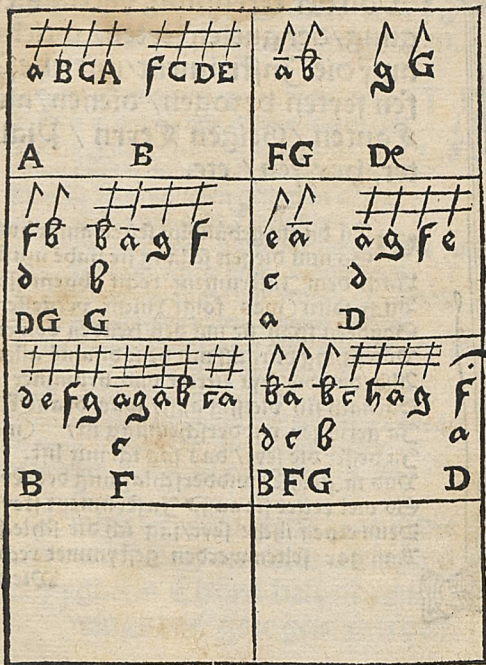 a B C A f C D E
A B
ā b̄ g G
F G D e
f b b̄ ā g f
d b
D G G
e ā ā g f e
c d
a D
d e f g ā g ā b̄ c̄ ā
c
B F
b̄ ā b̄ c̄ h̄ ā g f
d c b a
B F G D